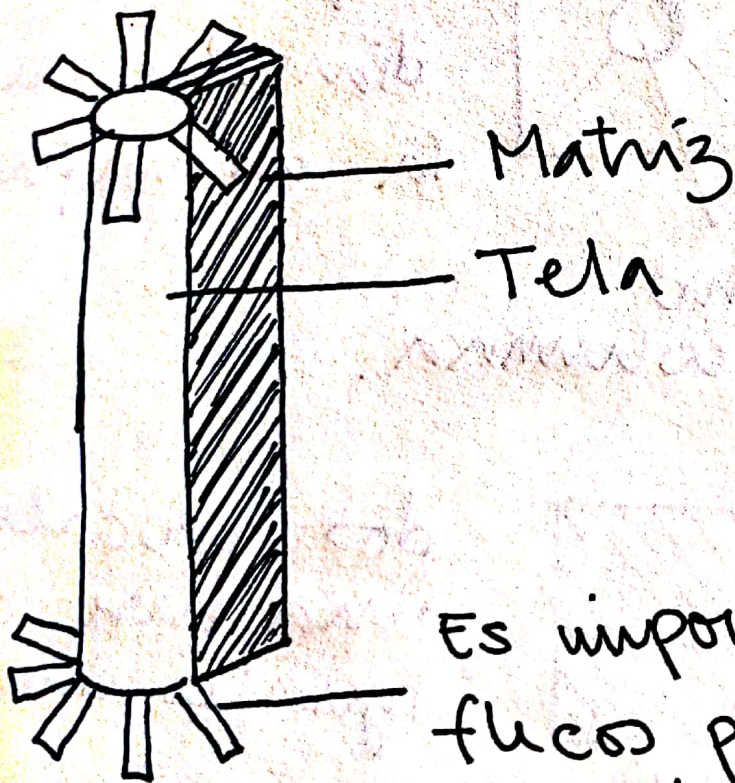 Matriz
Tela
Es impor
flecos p